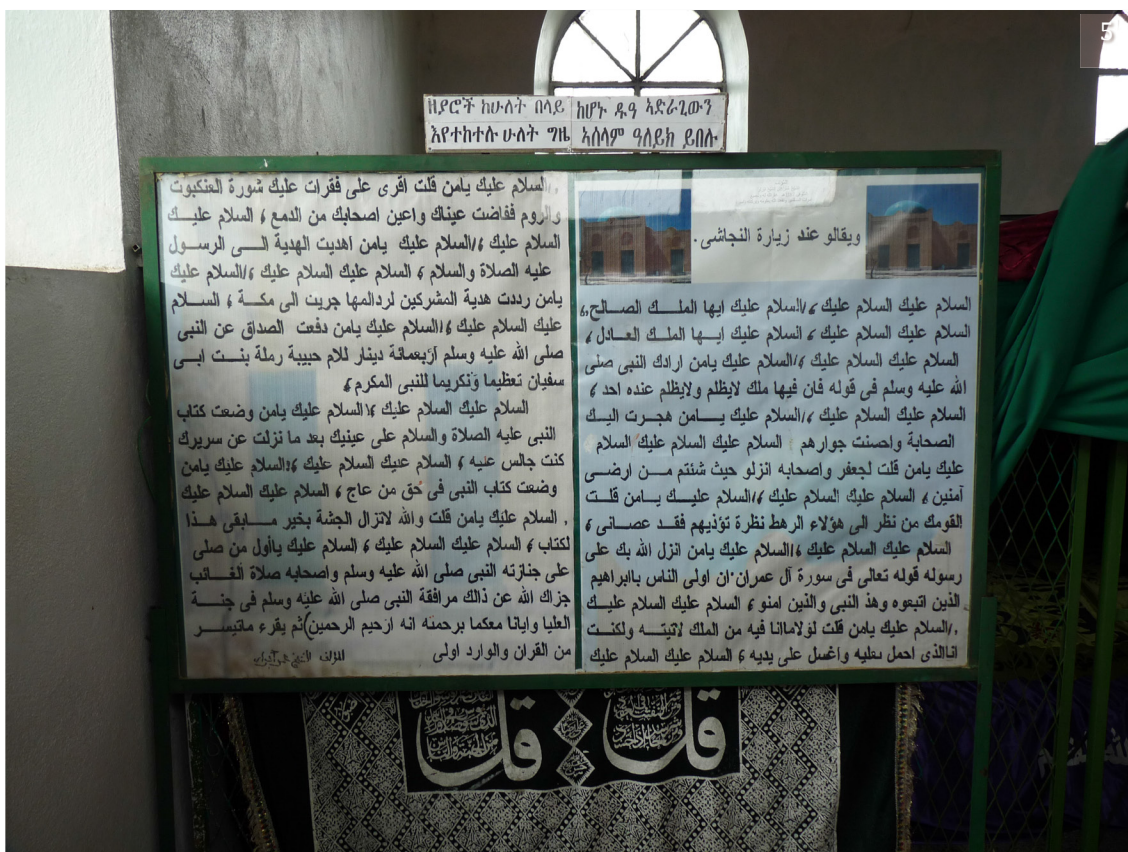 5
ዘያሮች ከሁለት በላይ ከሆኑ ዱዓ ኣድራጊውን
እየተከተሉ ሁለት ግዜ ኣሰላም ዓለይክ ይበሉ
ويقالو عند زيارة النجاشى.
السلام عليك السلام عليك ؟/السلام عليك ايها الملك الصالح,و
السلام عليك السلام عليك ؟ السلام عليك ايها الملك العادل ؟
السلام عليك السلام عليك ؟/السلام عليك يامن ارادك النبى صلى
الله عليه وسلم فى قوله فان فيها ملك لايظلم ولايظلم عنده احد ؟
السلام عليك السلام عليك ؟/السلام عليك يامن هجرت اليك
الصحابة واحسنت جوارهم السلام عليك السلام عليك السلام
عليك يامن قلت لجعفر واصحابه انزلو حيث شئتم من ارضى
آمنين ؟ السلام عليك السلام عليك ؟/السلام عليك يامن قلت
القومك من نظر الى هؤلاء الرهط نظرة تؤذيهم فقد عصانى ؟
السلام عليك السلام عليك ؟/السلام عليك يامن انزل الله بك على
رسوله قوله تعالى فى سورة آل عمران.ان اولى الناس باابراهيم
الذين اتبعوه وهذ النبى والذين امنو ؟ السلام عليك السلام عليك
,/السلام عليك يامن قلت لؤلاماانا فيه من الملك لاتيته ولكنت
اناالذى احمل نعليه واغسل على يديه ؟ السلام عليك السلام عليك
,/السلام عليك يامن قلت اقرى على فقرات عليك شورة العنكبوت
والروم ففاضت عيناك واعين اصحابك من الدمع ؟ السلام عليك
السلام عليك ؟/السلام عليك يامن اهديت الهدية الى الرسول
عليه الصلاة والسلام ؟ السلام عليك السلام عليك ؟/السلام عليك
يامن رددت هدية المشركين لردالمها جريت الى مكة ؟ السلام
عليك السلام عليك ؟/السلام عليك يامن دفعت الصداق عن النبى
صلى الله عليه وسلم أربعمائة دينار للام حبيبة رملة بنت ابى
سفيان تعظيما وتكريما للنبى المكرم ؟
السلام عليك السلام عليك ؟/السلام عليك يامن وضعت كتاب
النبى عليه الصلاة والسلام على عينيك بعد ما نزلت عن سريرك
كنت جالس عليه ؟ السلام عليك السلام عليك ؟/السلام عليك يامن
وضعت كتاب النبى فى حق من عاج ؟ السلام عليك السلام عليك
, السلام عليك يامن قلت والله لاتزال الجشة بخير مابقى هذا
لكتاب ؟ السلام عليك السلام عليك ؟ السلام عليك ياأول من صلى
على جنازته النبى صلى الله عليه وسلم واصحابه صلاة الغائب
جزاك الله عن ذالك مرافقة النبى صلى الله عليه وسلم فى جنة
العليا وايانا معكما برحمته انه ارحيم الرحمين)ثم يقرء ماتيسر
من القران والوارد اولى المؤلف
قل
قل